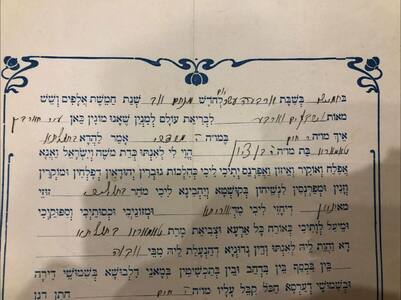 בחמישי בשבת ארבעה עשר יום לחדש מנחם אב שנת חמשת אלפים ושש
מאות לבריאת עולם למנין שאנו מונין כאן עיר חארבין
איך מו״ה ר' חיים במו״ה ר' אמר להדא בתולתא
טאמארא בת מו״ה ר' בן ציון הוי לי לאנתו כדת משה וישראל ואנא
אפלח ואוקיר ואיזון ואפרנס יתיכי ליכי כהלכות גוברין יהודאין דפלחין ומוקרין
וזנין ומפרנסין לנשיהון בקושטא ויהבינא ליכי מהר בתוליכי זוזי
מאתן דיחזי ליכי מדאורייתא ומזוניכי וכסותיכי וסיפוקיכי
ומיעל לותיכי כאורח כל ארעא וצביאת מרת טאמארא בתולתא
דא והות ליה לאנתו ודין נדוניא דהנעלת ליה מבי אבוה
בין בכסף בין בדהב ובין בתכשיטין במאני דלבושא בשמושי דירה
ובשמושי דערסא הכל קבל עליו מו״ה ר' חיים חתן דנן